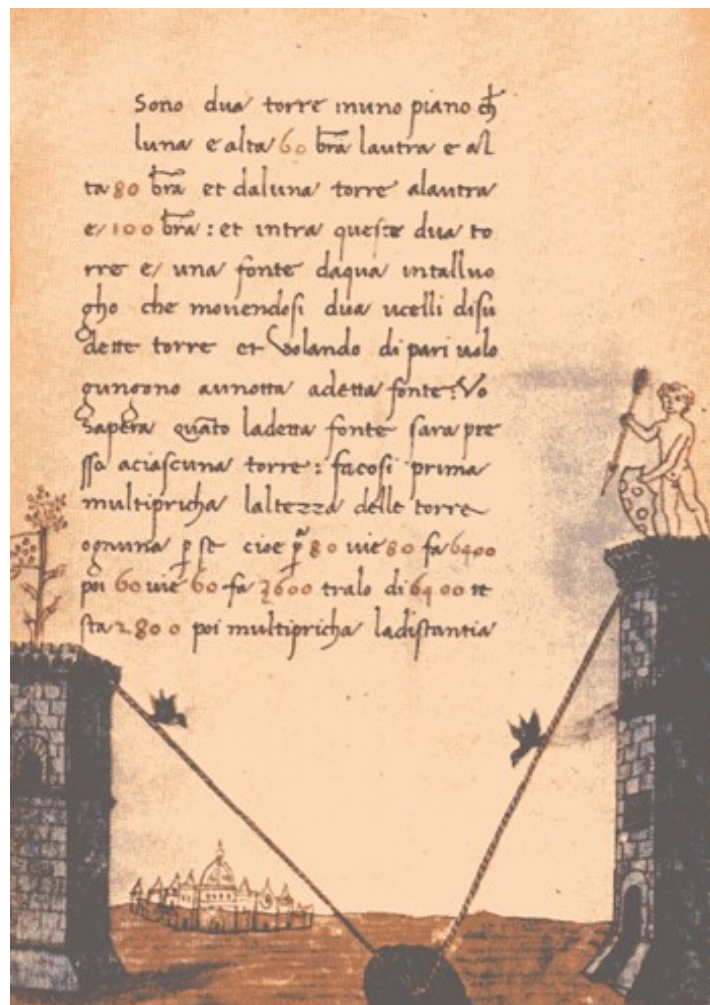 Sono dua torre inuno piano ch
luna e alta 60 bra lautra e al
ta 80 bra et daluna torre alautra
e 100 bra : et intra queste dua to
rre e una fonte daqua intalluo
gho che movendosi dua ucelli disu
dette torre et volando di pari uolo
gungono aunotta adetta fonte: Vo
sapera quāto ladetta fonte sara pre
sso aciascuna torre : facosi prima
multipricha laltezza delle torre
ognuna p se cioe p 80 uie 80 fa 6400
poi 60 uie 60 fa 3600 tralo di 6400 re
sta 2800 poi multipricha ladistantia